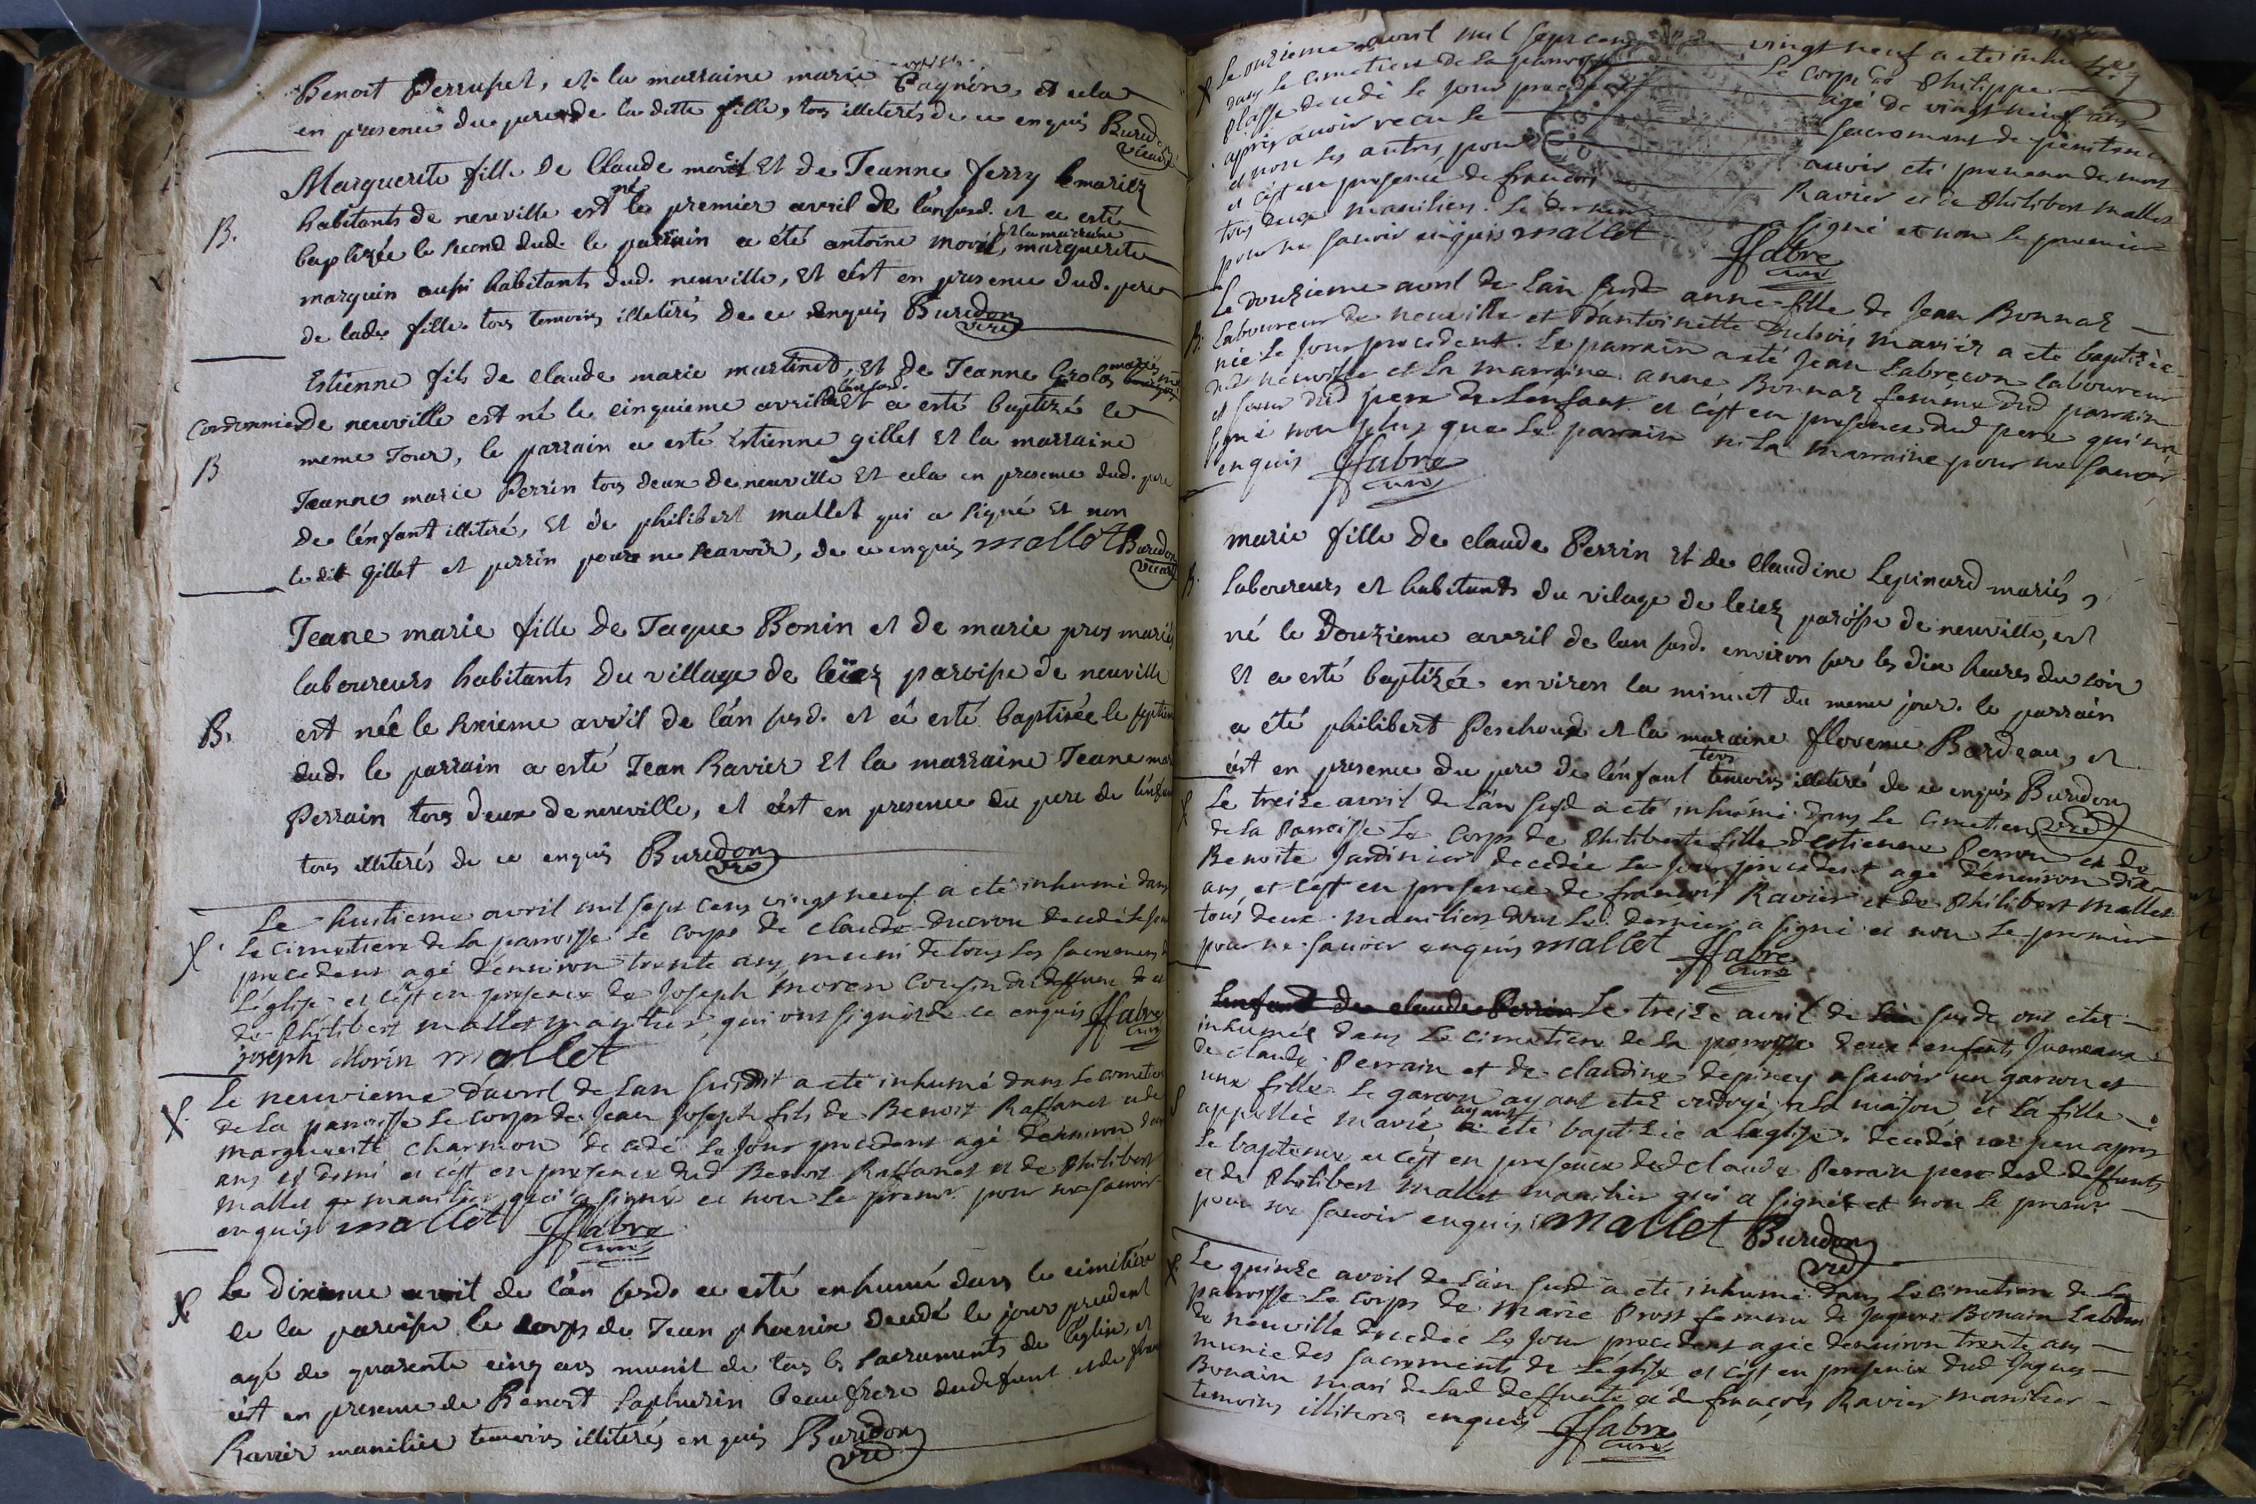 Benoit Perruset, et la marraine marie Pagnon, et cela
en presence du pere de la ditte fille, tos illeterés de ce enquis Buridon
vicaire
Marguerite fille De Claude morel Et de Jeanne ferry mariez
habitants de neuville est né le premier avril de l'an susd. et a esté
B.
baptisée le second dud. le parrain a été antoine morel, et la marraine marguerite
marquin aussi habitants dud. neuville, Et c'est en presence dud. pere
de lade. fille tos temoins illeterés De ce enquis Buridon
vre
Estienne fils de Claude marie martinet, Et de Jeanne mariés
Cordonnier De neuville est né le cinquieme avril de l'an susd. Et a esté baptizé le
B
meme Jour, le parrain a esté Estienne gillet Et la marraine
Jeanne marie Perrin tos deux de neuville Et cela en presence dud. pere
De l'enfant illiteré, Et de philibert mallet qui a signé Et non
le dit Gillet et perrin pour ne sçavoir, de ce enquis mallet Buridon
vicaire
Jeane marie fille de Jaque Bonin et de marie pros mariés
laboureurs habitants Du village de leiez paroisse de neuville
B.
est née le sixieme avril de l'an susd. et a esté baptisée le septiem
dud. le parrain a esté Jean Ravier Et la marraine Jeane mar
Perrain tos deux de neuville, et c'est en presence du pere de l'enfan
tos illiterés de ce enquis Buridon
vre
Le huitieme avril mil sept cens vingt neuf a eté inhumé dans
X
Le cimetiere de La parroisse Le corps de claude ducrou decedé le jour
precedent agé d'environ trente ans muni de tous Les sacremens de
L'église et c'est en presence de Joseph moren cousin du deffunt et
de Philibert mallet manilier, qui ont signés de ce enquis ffabre
curé
joseph Morin mallet
Le neuvieme d'avril de L'an susdit a eté inhumé dans Le cimetiere
X.
de La parroisse Le corps de Jean Joseph fils de Benoit Raffanet et de
marguerite charmon decedé Le Jour precedent agé d'environ deux
ans et demi et c'est en presence dud Benoit Raffanet et de Philibert
mallet manilier qui a signé et non Le premr. pour ne savoir
enquis mallet ffabre
curé
X
Le dixieme avril de l'an susd. a esté enhumé dans le cimitiére
de la paroisse le corps de Jean phoenix decedé le jour precedent
agé de quarente cinq ans munit de tos ls sacraments de l'église, et
c'est en presence de Benoit beaufrere dudefunt et de fran
Ravier manilier temoins illiterés enquis Buridon
vre
X
Le onzieme avril mil sept cens vingt neuf a eté inhumé
dans Le cimetiere de La parroisse Le corps de Philippe
Plasse decedé Le jour precedent agé de vingt neuf ans
après avoir recu Le sacrement de penitence
et non Les autres pour avoir eté prevenu de mort
et c'est en presence de francois Ravier et de Philibert mallet
tous deux maniliers. Le dernier a signé et non Le premier
pour ne savoir enquis mallet ffabre
curé
Le douzieme avril de L'an susd anne fille de Jean Bonnaz
B.
Laboureur de neuville et d'antoinette dubois mariés a eté baptisée
née Le Jour precedent. Le parrain a eté Jean Labreçon laboureur
dud neuville et La marraine anne Bonnaz femme dud parrain
et soeur dud pere de L'enfant et c'est en presence dud pere qui n'a
signé non plus que Le parrain ni La marraine pour ne savoir
enquis ffabre
curé
marie fille De claude Perrin Et de Claudine Lepinard mariés
B.
Laboureurs et habitants du vilage de leiez paroisse de neuville, est
né le Douzieme avril de l'an susd. environ sur les dix heures du soir
Et a esté baptizée environ la minuit du meme jour. le parrain
a été philibert Peschoud et la maraine florence Bardeau, et
c'est en presence du pere de l'enfant tos temoins illiteré de ce enquis Buridon
vre
X
Le treize avril de L'an susd a eté inhumé dans Le cimetiere
de La Parroisse Le corps de Philiberte fille d'estienne Perron et de
Benoite Jardinier decedée Le Jour precedent agé d'environ dix
ans et c'est en presence de françois Ravier et de Philibert mallet
tous deux maniliers dont Le dernier a signé et non Le premier
pour ne savoir enquis mallet ffabre
curé
Lenfant de claude Perrin Le treize avril de L'an susde ont etez
inhumés dans Le cimetiere de La parroisse deux enfants Jumeaux
de claude Perrain et de claudine depiney a savoir un garcon et
une fille. Le garcon ayant etez ondoyé a La maison et La fille
appellée marie ayant eté baptisée a L'eglise. decedés un peu apres
Le bapteme et c'est en presence dud claude Perrain pere desd deffunts
et de Philibert mallet manilier qui a signé et non Le premr
pour ne savoir enquis mallet Buridon
vre
X.
Le quinze avril de L'an susd a eté inhumé dans Le cimetiere de La
parroisse Le corps de marie Prost femme de Jaques Bonain Labour
de neuville decedée Le Jour precedent agée d'environ trente ans
munie des sacrements de L'église et c'est en presence dud Jaques
Bonain mari de Lad deffunte et de françois Ravier manilier
temoins illiterés enquis ffabre
curé